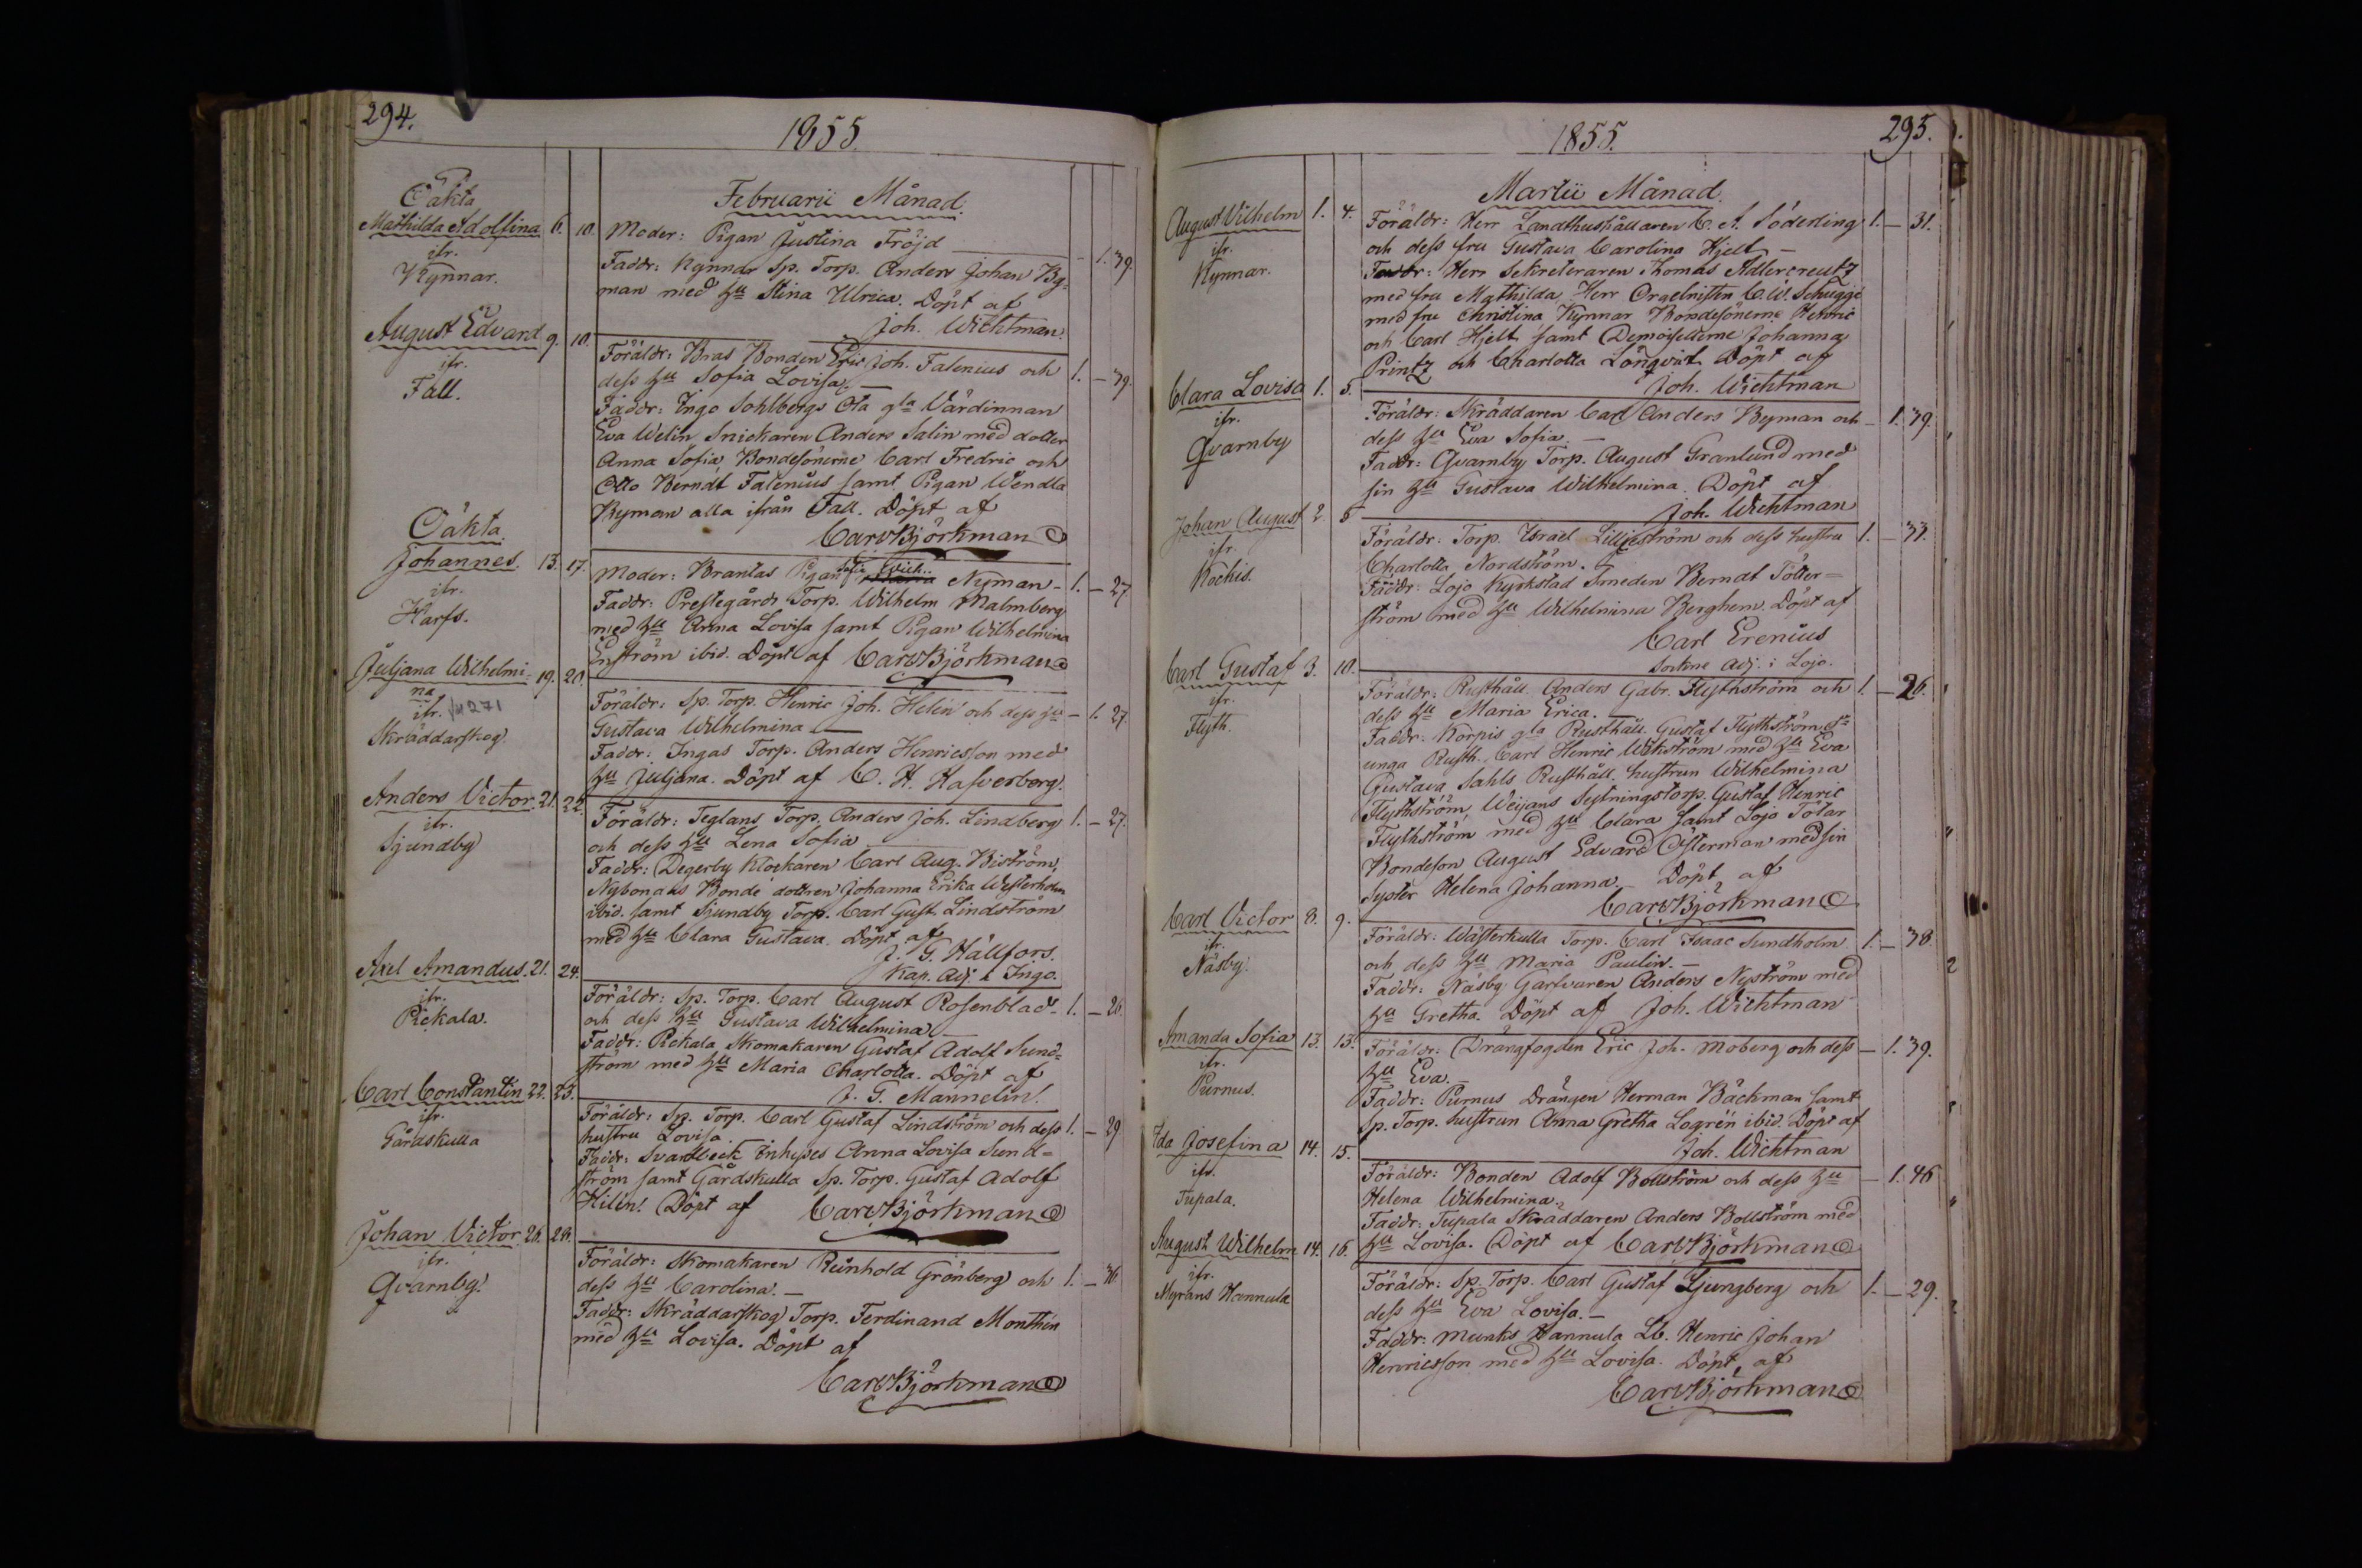 294.
1855.
Februarii Månad.
Oäkta
Mathilda Adolfina 6. 10. Moder: Pigan Justina Fröjd — - 1. 39.
ifr. Faddr: Kynnar Sp. Torp. Anders Johan By=
Kynnar. man med hu Stina Ulrica. Döpt af
Joh. Wichtman.
August Edvard 9. 10. Föräldr: Bras Bonden Eric Joh. Falenius och 1. — 39.
ifr. dess hu Sofia Lovisa. —
Fall. Faddr: Ingo Sohlbergs Ota gla Värdinnan
Eva Welin, Snickaren Anders Salin med dotter
Anna Sofia Bondesönerne Carl Fredric och
Otto Berndt Falenius samt Pigan Wendla
Byman alla ifrån Fall. Döpt af
Carl Björkman
Oäkta
Johannes. 13. 17. Moder: Brantas Pigan Sofia Nyman - 1. — 27
ifr. Faddr: Prestegårds Torp. Wilhelm Malmberg
Harfs. med hu Anna Lovisa samt Pigan Wilhelmina
Enström ibid. Döpt af Carl Björkman
Juljana Wilhelmi- 19. 20. Föräldr: Sp. Torp. Henric Joh. Helin och dess hu — 1. 27.
na Gustava Wilhelmina —
ifr. 271 Faddr: Ingas Torp. Anders Henricsson med
Skräddarskog. hu Juljana. Döpt af C. H. Hasverberg.
Anders Victor. 21. 22. Föräldr: Teglans Torp. Anders Joh. Lindberg 1. — 27.
ifr. och dess hu Lena Sofia —
Sjundby Faddr: Degerby Klockaren Carl Aug. Biström,
Nybonaas Bonde dottren Johanna Erika Westerholm
ibid. samt Sjundby Torp. Carl Gust. Lindström
med hu Clara Gustava. Döpt af
J. G. Hällfors.
Kap. Adj. i Ingo.
Axel Amandus. 21. 24. Föräldr: Sp. Torp. Carl August Rosenblad - 1. — 26.
ifr. och dess hu Gustava Wilhelmina —
Pickala. Faddr: Pickala Skomakaren Gustaf Adolf Sund=
ström med hu Maria Charlotta. Döpt af
J. G. Mannelin.
Carl Constantin 22. 25. Föräldr: Sp. Torp. Carl Gustaf Lindström och dess 1. — 29
ifr. hustru Lovisa.
Gårdskulla Faddr: Svartbeck Inhyses Anna Lovisa Sund=
ström samt Gårdskulla Sp. Torp. Gustaf Adolf
Hilin. Döpt af Carl Björkman
Johan Victor 26. 28. Föräldr: Skomakaren Reinhold Grönberg och 1. — 36.
ifr. dess hu Carolina. —
Qvarnby. Faddr: Skräddarskog Torp. Ferdinand Monthin
med hu Lovisa. Döpt af
Carl Björkman
1855.
295.
Martii Månad.
August Wilhelm 1. 4. Föräldr: Herr Landthushållaren C. A. Söderling 1. — 31.
ifr. och dess fru Gustava Carolina Hjelt —
Kynnar. Faddr: Herr Sekreteraren Thomas Adlercreutz
med fru Mathilda, Herr Orgelnisten C. W. Schugge
med fru Christina Kynnar Bondesönerne Henric
och Carl Hjelt samt Demoisellerne Johanna
Printz och Charlotta Lönqvist. Döpt af
Joh. Wichtman
Clara Lovisa 1. 5. Föräldr: Skräddaren Carl Anders Byman och — 1. 39.
ifr. dess hu Eva Sofia. —
Qvarnby Faddr: Qvarnby Torp. August Granlund med
sin hu Gustava Wilhelmina. Döpt af
Joh. Wichtman
Johan August 2. 5 Föräldr: Torp. Israel Liljeström och dess hustru 1. — 33.
ifr. Charlotta Nordström.
Kockis. Faddr: Lojo Kyrkstad Smeden Berndt Tötter=
ström med hu Wilhelmina Berghem. Döpt af
Carl Erenius
Sockne Adj. i Lojo.
Carl Gustaf 3. 10. Föräldr: Rusthåll. Anders Gabr. Flythström och 1. — 26.
ifr. dess hu Maria Erica. —
Flyth. Faddr: Korpis gla Rusthåll. Gustaf Flythström
unga Rusth. Carl Henric Wikström med hu Eva
Gustava, Sahls Rusthåll. hustrun Wilhelmina
Flythström, Weijans Sytningstorp. Gustaf Henric
Flythström med hu Clara samt Lojo Tötar
Bondeson August Edvard Österman med sin
syster Helena Johanna. Döpt af
Carl Björkman
Carl Victor 8. 9. Föräldr: Wästerkulla Torp. Carl Isaac Sundholm 1. — 38.
ifr. och dess hu Maria Paulin. —
Näsby. Faddr: Näsby Garfvaren Anders Nyström med
hu Gretha. Döpt af Joh. Wichtman
Amanda Sofia 13. 13. Föräldr: Drängfogden Eric Joh. Moberg och dess — 1. 39.
ifr. hu Eva.
Purnus. Faddr: Purnus Drängen Herman Bäckman samt
Sp. Torp. hustrun Anna Gretha Logrén ibid. Döpt af
Joh. Wichtman
Ida Josefina 14. 15. Föräldr: Bonden Adolf Bollström och dess hu — 1. 46
ifr. Helena Wilhelmina.
Tupala. Faddr: Tupala Skräddaren Anders Bollström med
hu Lovisa. Döpt af Carl Björkman
August Wilhelm 14. 16. Föräldr: Sp. Torp. Carl Gustaf Ljungberg och 1. — 29.
ifr. dess hu Eva Lovisa. —
Myrans Hannula Faddr: Munks Hannula Lb. Henric Johan
Henricsson med hu Lovisa. Döpt af
Carl Björkman